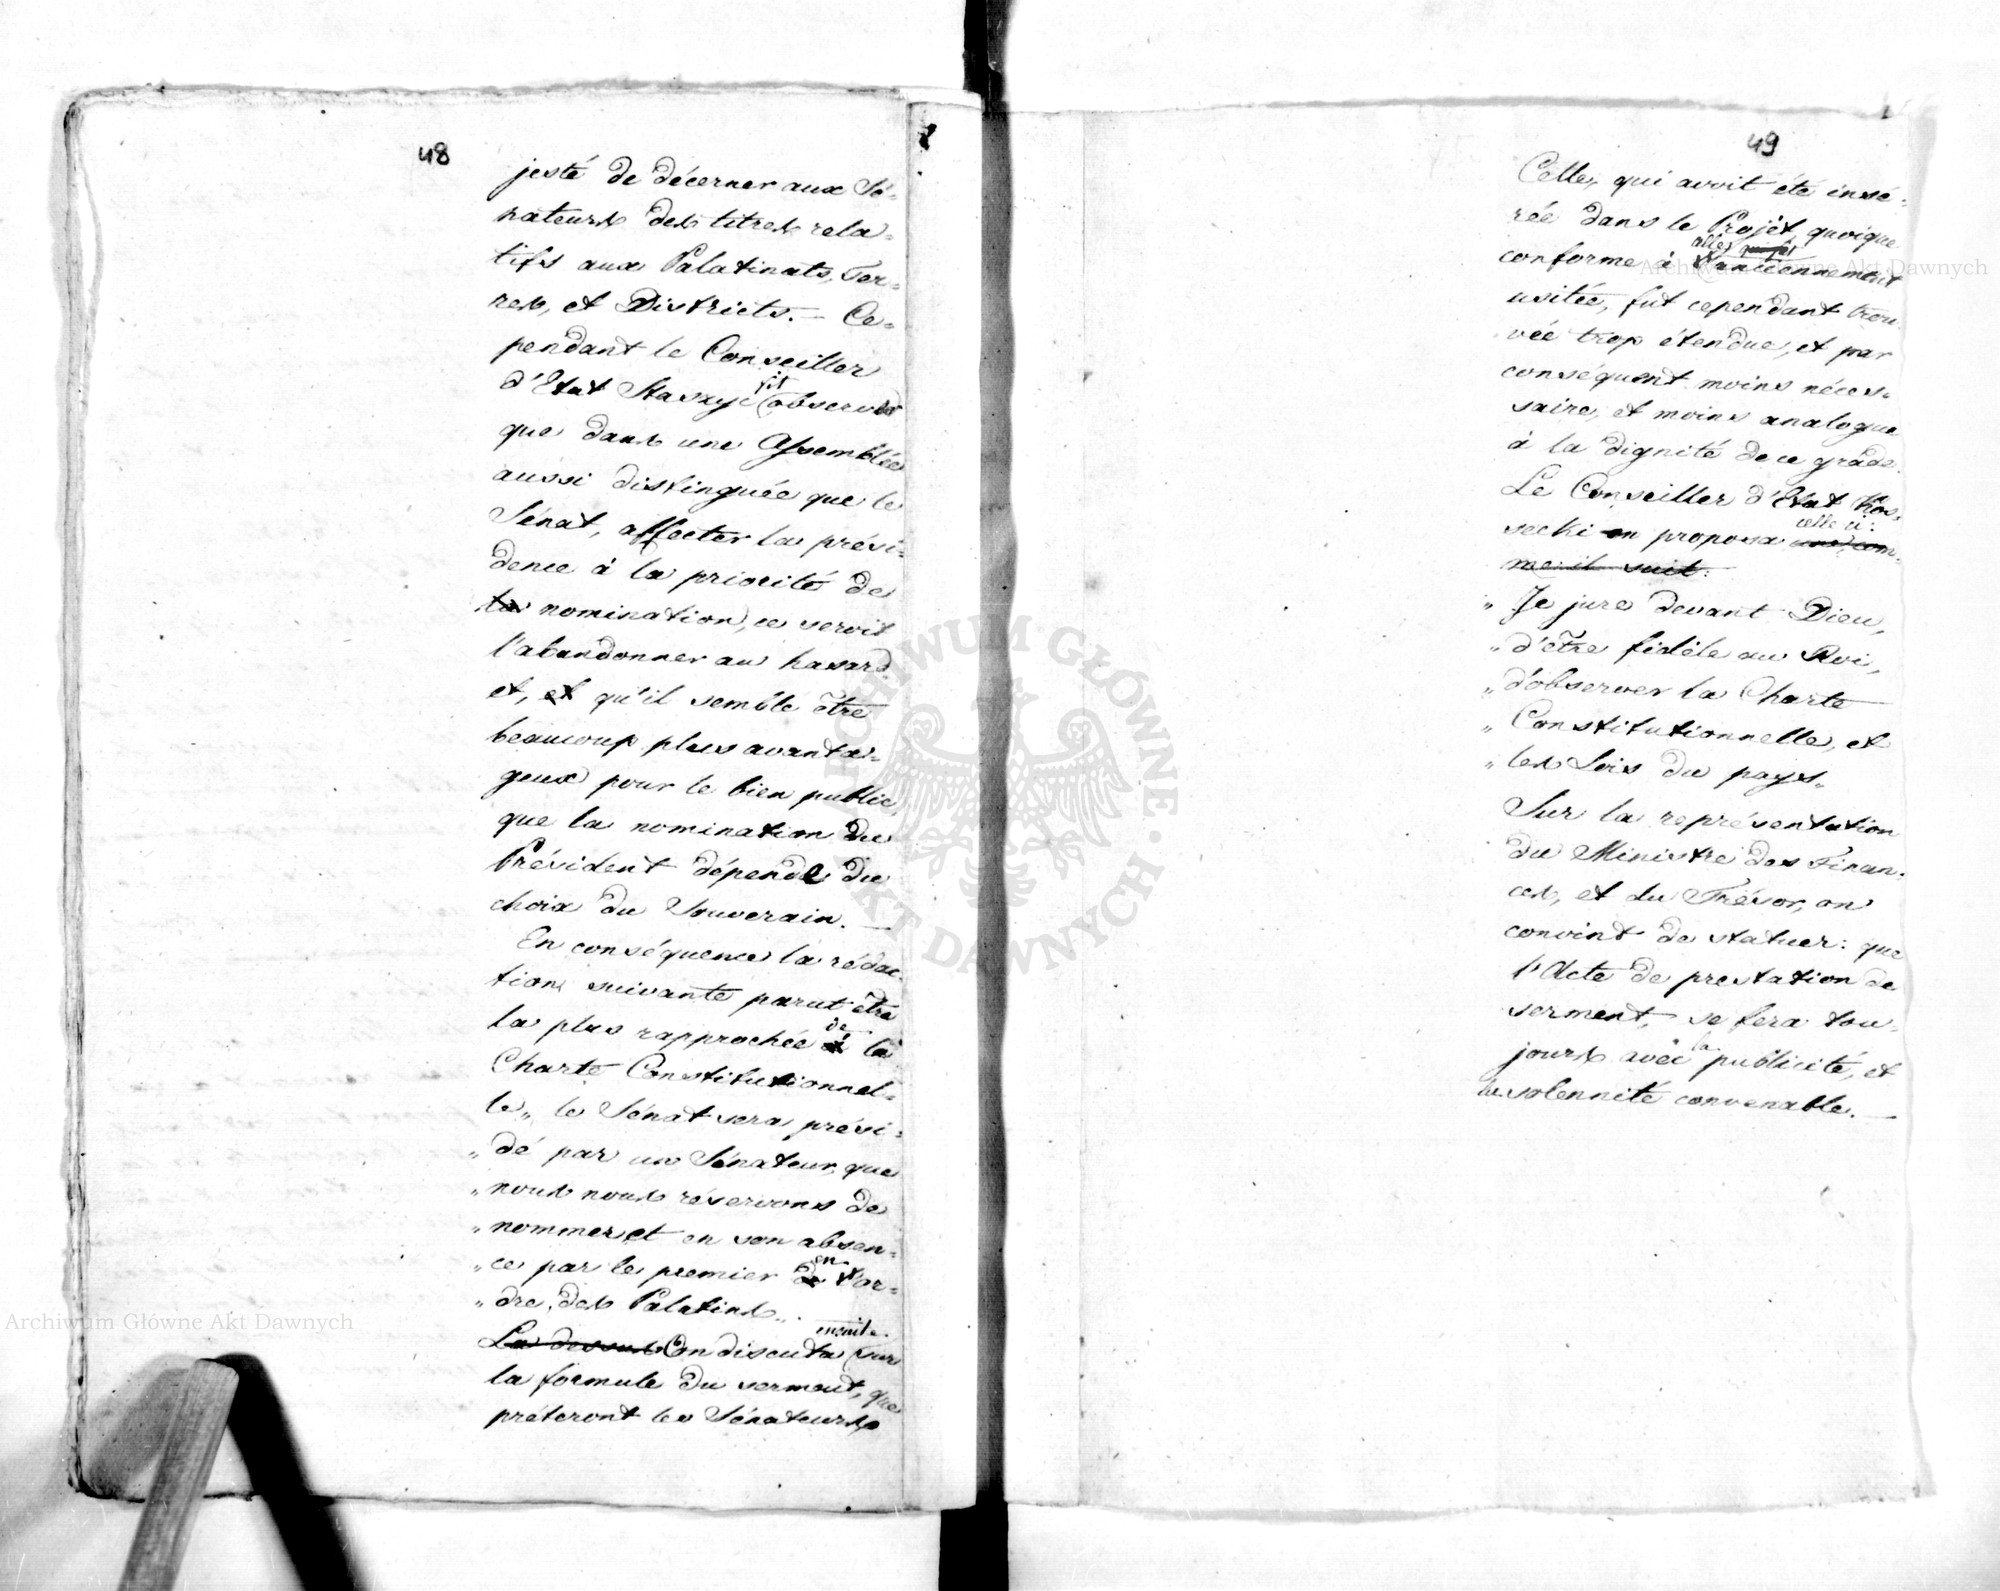 48
jesté de décerner aux Sé-
nateurs des titres rela-
tifs aux Palatinats, Ter-
res, et Districts. — Ce-
pendant le Conseiller
fit
d'Etat Staszyc observer
que dans une Assemblée
aussi distinguée que le
Sénat, affecter la prési-
dence à la priorité de
la nomination, ce seroit
l'abandonner au hasard
et, et qu'il semble être
beaucoup plus avanta-
geux pour le bien public,
que la nomination du
Président dépende du
choix du Souverain. —
En conséquence la rédac-
tion suivante parut être
de
la plus rapprochée à la
Charte Constitutionnel-
le „ le Sénat sera prési-
„ dé par un Sénateur, que
„ nous nous réservons de
„ nommer et en son absen-
en
„ ce par le premier de l'or-
„ dre des Palatins „.
ensuite
La dessus On discuta sur
la formule du serment, que
prêteront les Sénateurs
49
Celle, qui avoit été insé-
rée dans le Projèt, quoique
conforme à anciennement
usitée, fut cependant trou-
vée trop étendue, et par
conséquent moins néces-
saire, et moins analogue
à la dignité de ce grade.
Le Conseiller d'Etat Kos-
celle ci:
secki en proposa une, com-
me il suit:
„ Je jure devant Dieu,
„ d'être fidèle au Roi,
„ d'observer la Charte
„ Constitutionnelle, et
„ les Lois du pays „
Sur la représentation
du Ministre des Finan-
ces, et du Trésor, on
convint de statuer: que
l'Acte de prestation de
serment, se fera tou-
la
jours avec publicité, et
la solennité convenable. —
Archiwum Główne Akt Dawnych
Archiwum Główne Akt Dawnych
ARCHIWUM GŁÓWNE · AKT DAWNYCH ·